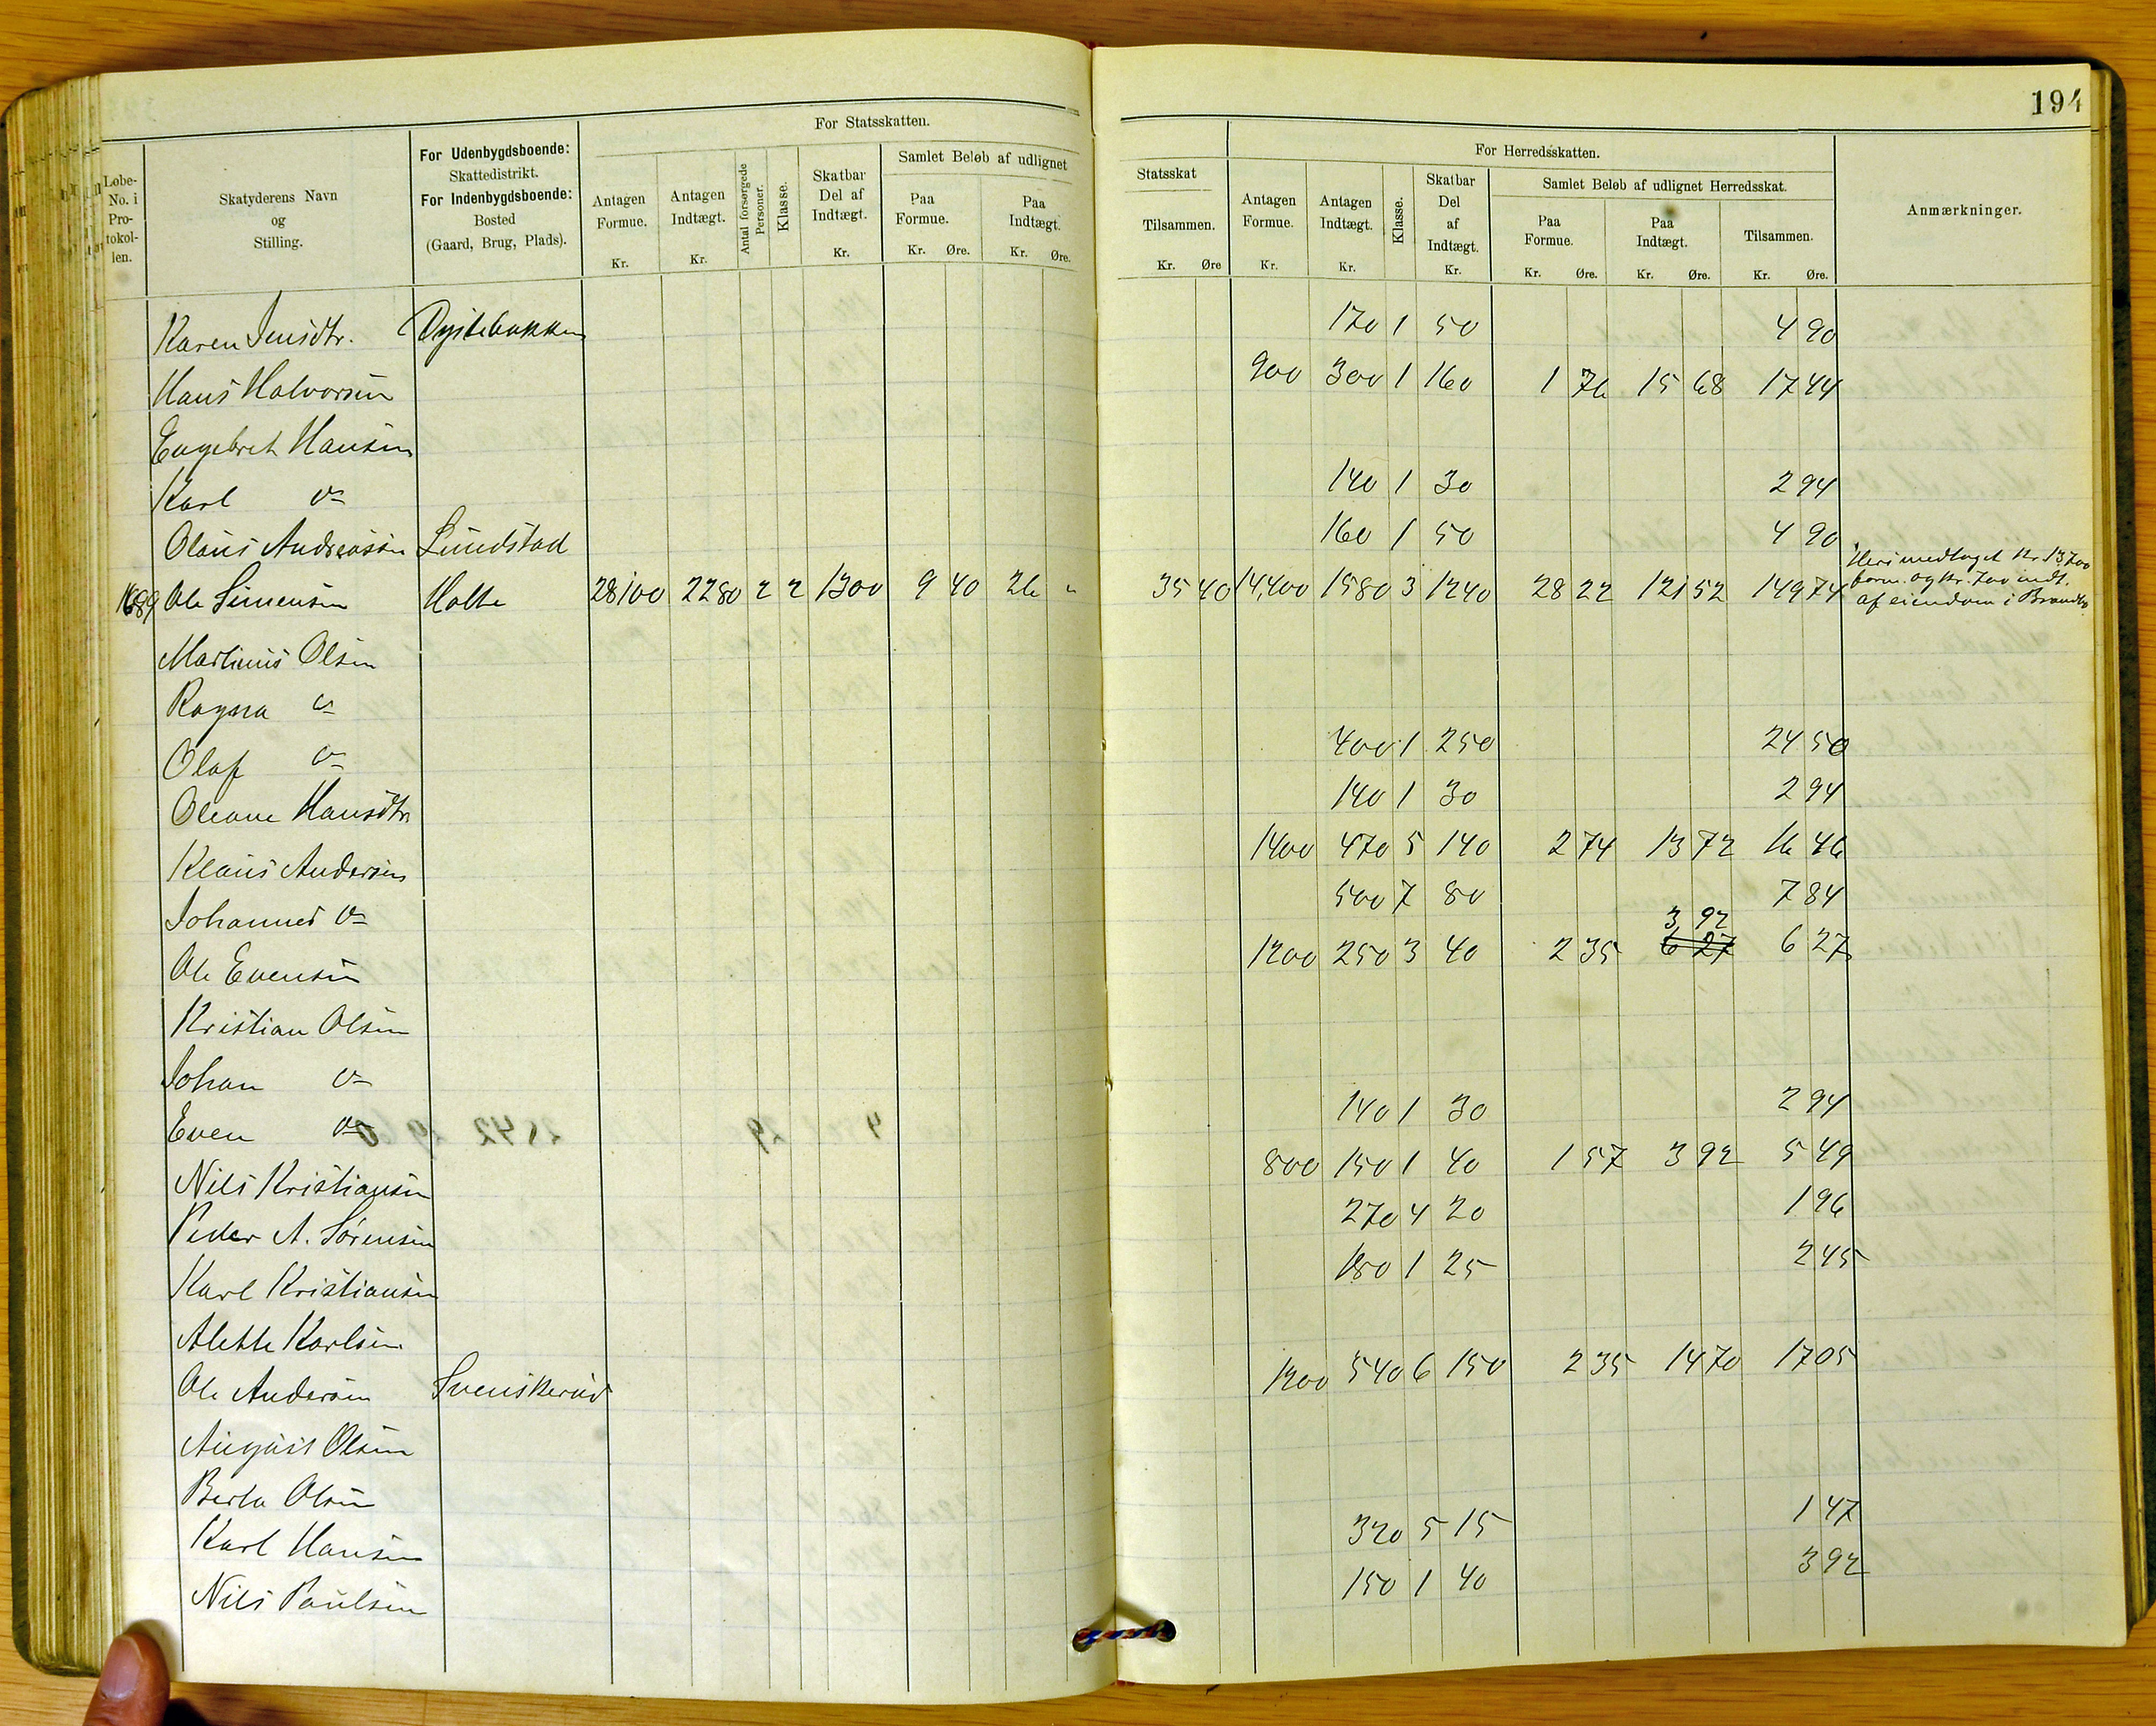 194
For Statsskatten.
Løbe-No. i Pro-tokol-len.
Skatyderens Navn og Stilling.
For Udenbygdsboende: Skattedistrikt. For Indenbygdsboende: Bosted (Gaard, Brug, Plads).
Antagen Formue. Kr.
Antagen Indtægt. Kr.
Antal forsørgede Personer.
Klasse.
Skatbar Del af Indtægt. Kr.
Samlet Beløb af udlignet
Paa Formue. Kr. Øre.
Paa Indtægt. Kr. Øre.
Statsskat
Tilsammen. Kr. Øre
For Herredsskatten.
Antagen Formue. Kr.
Antagen Indtægt. Kr.
Klasse.
Skatbar Del af Indtægt. Kr.
Samlet Beløb af udlignet Herredsskat.
Paa Formue. Kr. Øre.
Paa Indtægt. Kr. Øre.
Tilsammen. Kr. Øre.
Anmærkninger.
Karen Jensdtr. Dystebakken 170 1 50 4 90
Hans Halvorsen 900 300 1 160 1 76 15 68 17 44
Engebret Hansen
Karl do 140 1 30 2 94
Olaus Andreassen Lundstad 160 1 50 4 90
1689 Ole Simensen Holte 28100 2280 2 2 1300 9 40 26 " 35 40 14,400 1580 3 1240 28 22 121 52 149 74 Heri medtaget kr. 13700
form. og kr. 700 indt.
af eiendom i Brandbo
Martinus Olsen
Ragna do
Olaf do 400 1 250 24 50
Oleane Hansdtr 140 1 30 2 94
Klaus Andersen 1400 470 5 140 2 74 13 72 16 46
Johannes do 500 7 80 7 84
Ole Evensen 1200 250 3 40 2 35 6 27 3 92 6 27
Kristian Olsen
Johan do
Even do 140 1 30 2 94
Nils Kristiansen 800 150 1 40 1 57 3 92 5 49
Peder A. Sørensen 270 4 20 1 96
Karl Kristiansen 130 1 25 2 45
Alette Karlsen
Ole Andersen Svenskerud 1200 540 6 150 2 35 14 70 17 05
August Olsen
Berta Olsen
Karl Hansen 320 5 15 1 47
Nils Paulsen 150 1 40 3 92